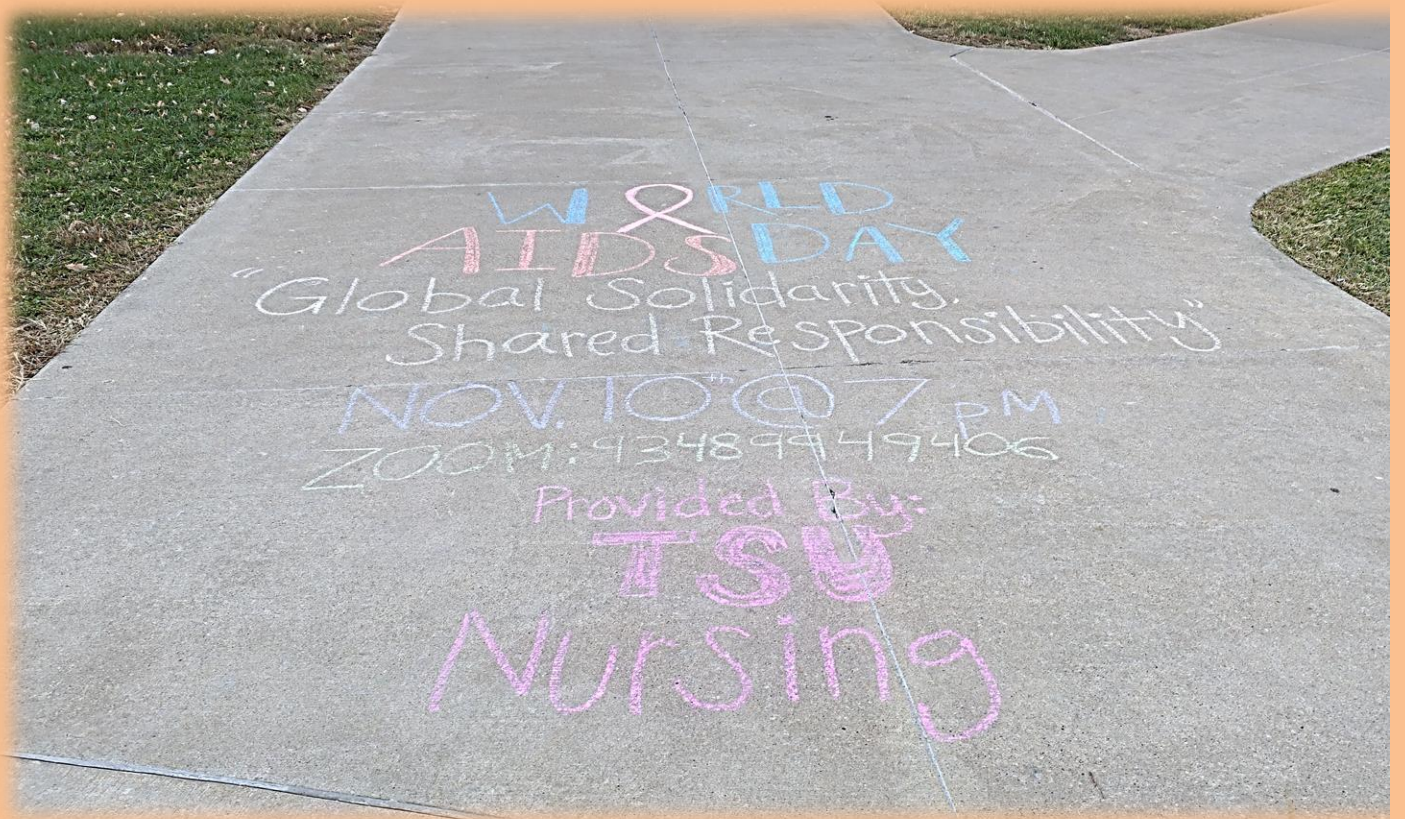 WORLD
AIDS DAY
"Global Solidarity,
Shared Responsibility"
NOV. 10th @ 7 PM
ZOOM: 93489949406
Provided By:
TSU
Nursing